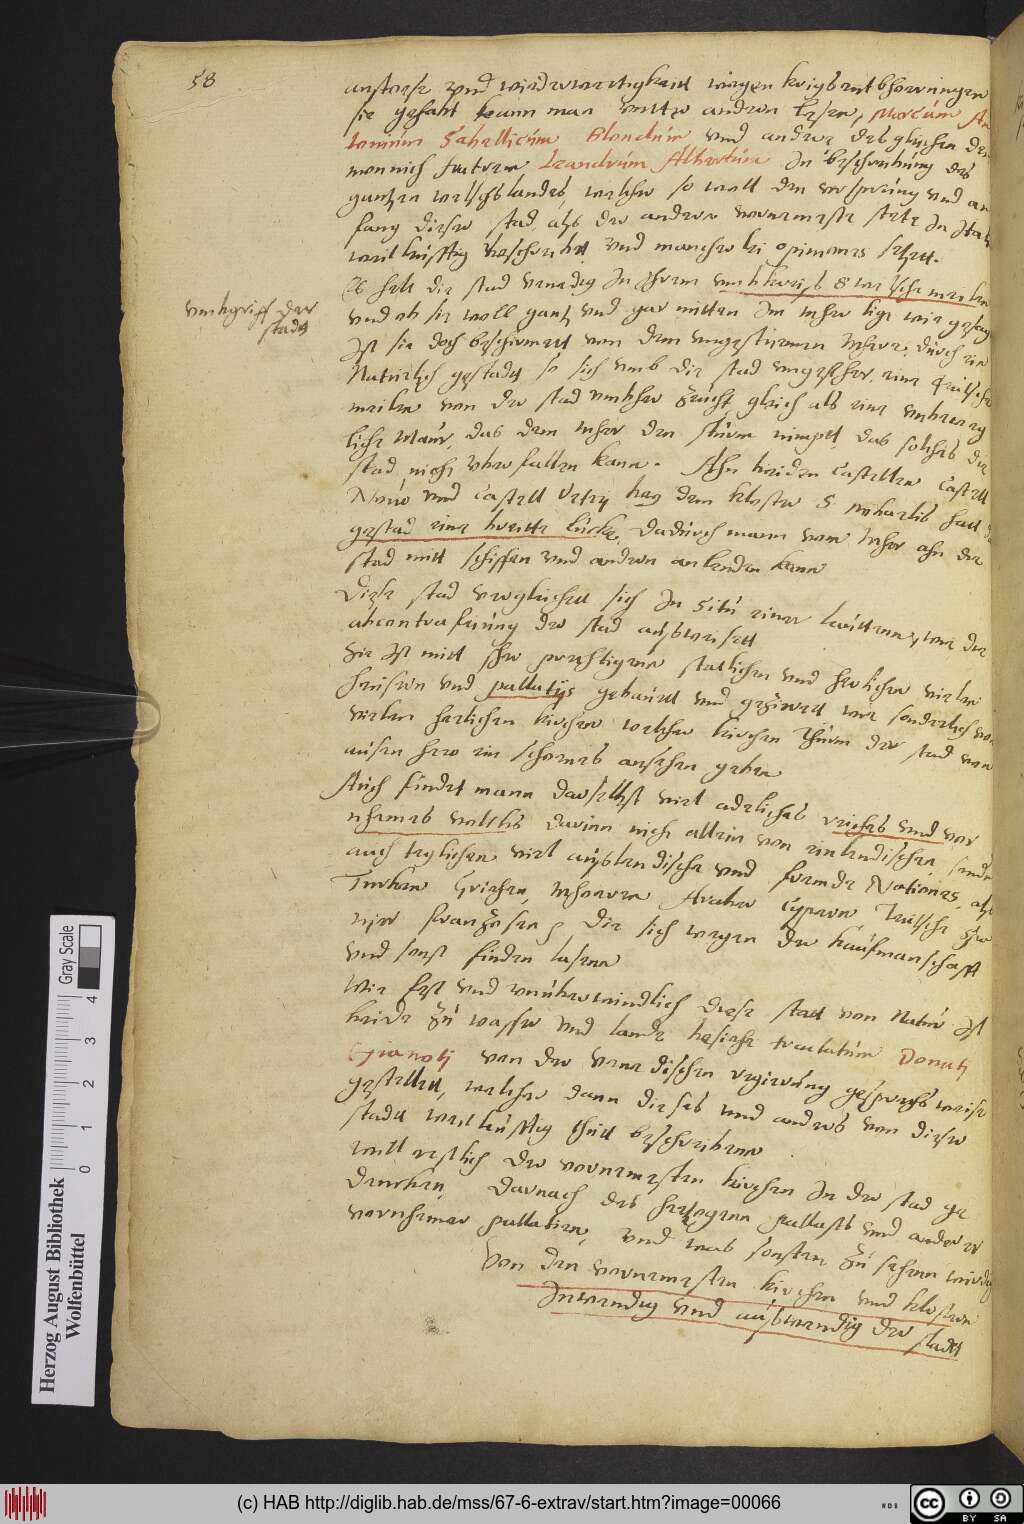 58
anstose und widerwertigkeit wegen kriegsentbhorungen
sie gehabt kann man unter andern lesen, Marcum An
tonium Sabellicum Blondum und andere desgleichen den
monnich fratrem Leandrum Albertum In beschreibung des
gantzen welschlandes, welcher so woll den ursprung und an
fang dieser stad, als der andern vornemeste stete In Itali
weitleufftig beschreibt, und mancherlei opiniones setzett.
Es helt die stad Venedig In Ihrem umbkreis 8 welsche meilen
umbgriff der
stadt
und ob sie woll gantz und gar mitten Im mehr ligt wie gesag
Ist sie doch beschirmett von dem ungesturmen mehre, durch ein
Naturlich gestadt so sich umb die stad ungefehr, eine teutsche
meilen von der stad umbher zeucht gleich als eine unbeweg
liche Maur, das dem mehr den sturm nimpt, das solches die
stad nicht uberfallen kann. Ahn beiden Castellen Castell
Novo und Castell Vetry bey dem kloster S Nicholis hatt
gestad eine breitte lucke, dadurch mann vom mehr ahn die
stad mitt schiffen und andern anlenden kann
Diese stad vergleichett sich In Situ einer lautten, wie die
abcontrafeiung der stad ausweisett
Sie Ist mitt sehr prechtigen statlichen und herlichen vielen
heusern und pallatijs gebauett und gezierett wie sonderlich von
vielen herlichen kirchen welcher kirchen thurm der stad von
ausen hero ein schoenes ansehen geben
Auch findet mann daselbst viel adeliches reiches und vor
nhemes volckes darinn nicht allein von einlendischen, sonder
auch teglichen viel auslendische und fremde Nationes, als
Turken Griechen, Mhoren Araber Cyprer Teutsche
nier Franzosen, die sich wegen der kaufmanschafft
und sonst finden lasen
Wie fest und unuberwindlich diese statt von Natur Ist
beide zu wasser und lande besiehe tractatum Donati
Gianotj von der Venedischen regierung gesprechs weise
gestellet, welcher dann dieses und anders von dieser
stadt weitleufftig thutt beschreiben
will erstlich der vornemesten kirchen In der stad ge
dencken, darnach des hertzogen pallasts und anderer
vornhemer pallatien, und was sonsten zu sehen wirdig
Von den vornemesten kirchen und klostern
Inwendig und auswendig der stadt
Herzog August Bibliothek
Wolfenbüttel
0 1 2 3 4
Gray Scale
(c) HAB http://diglib.hab.de/mss/67-6-extrav/start.htm?image=00066
WDB
cc
BY SA